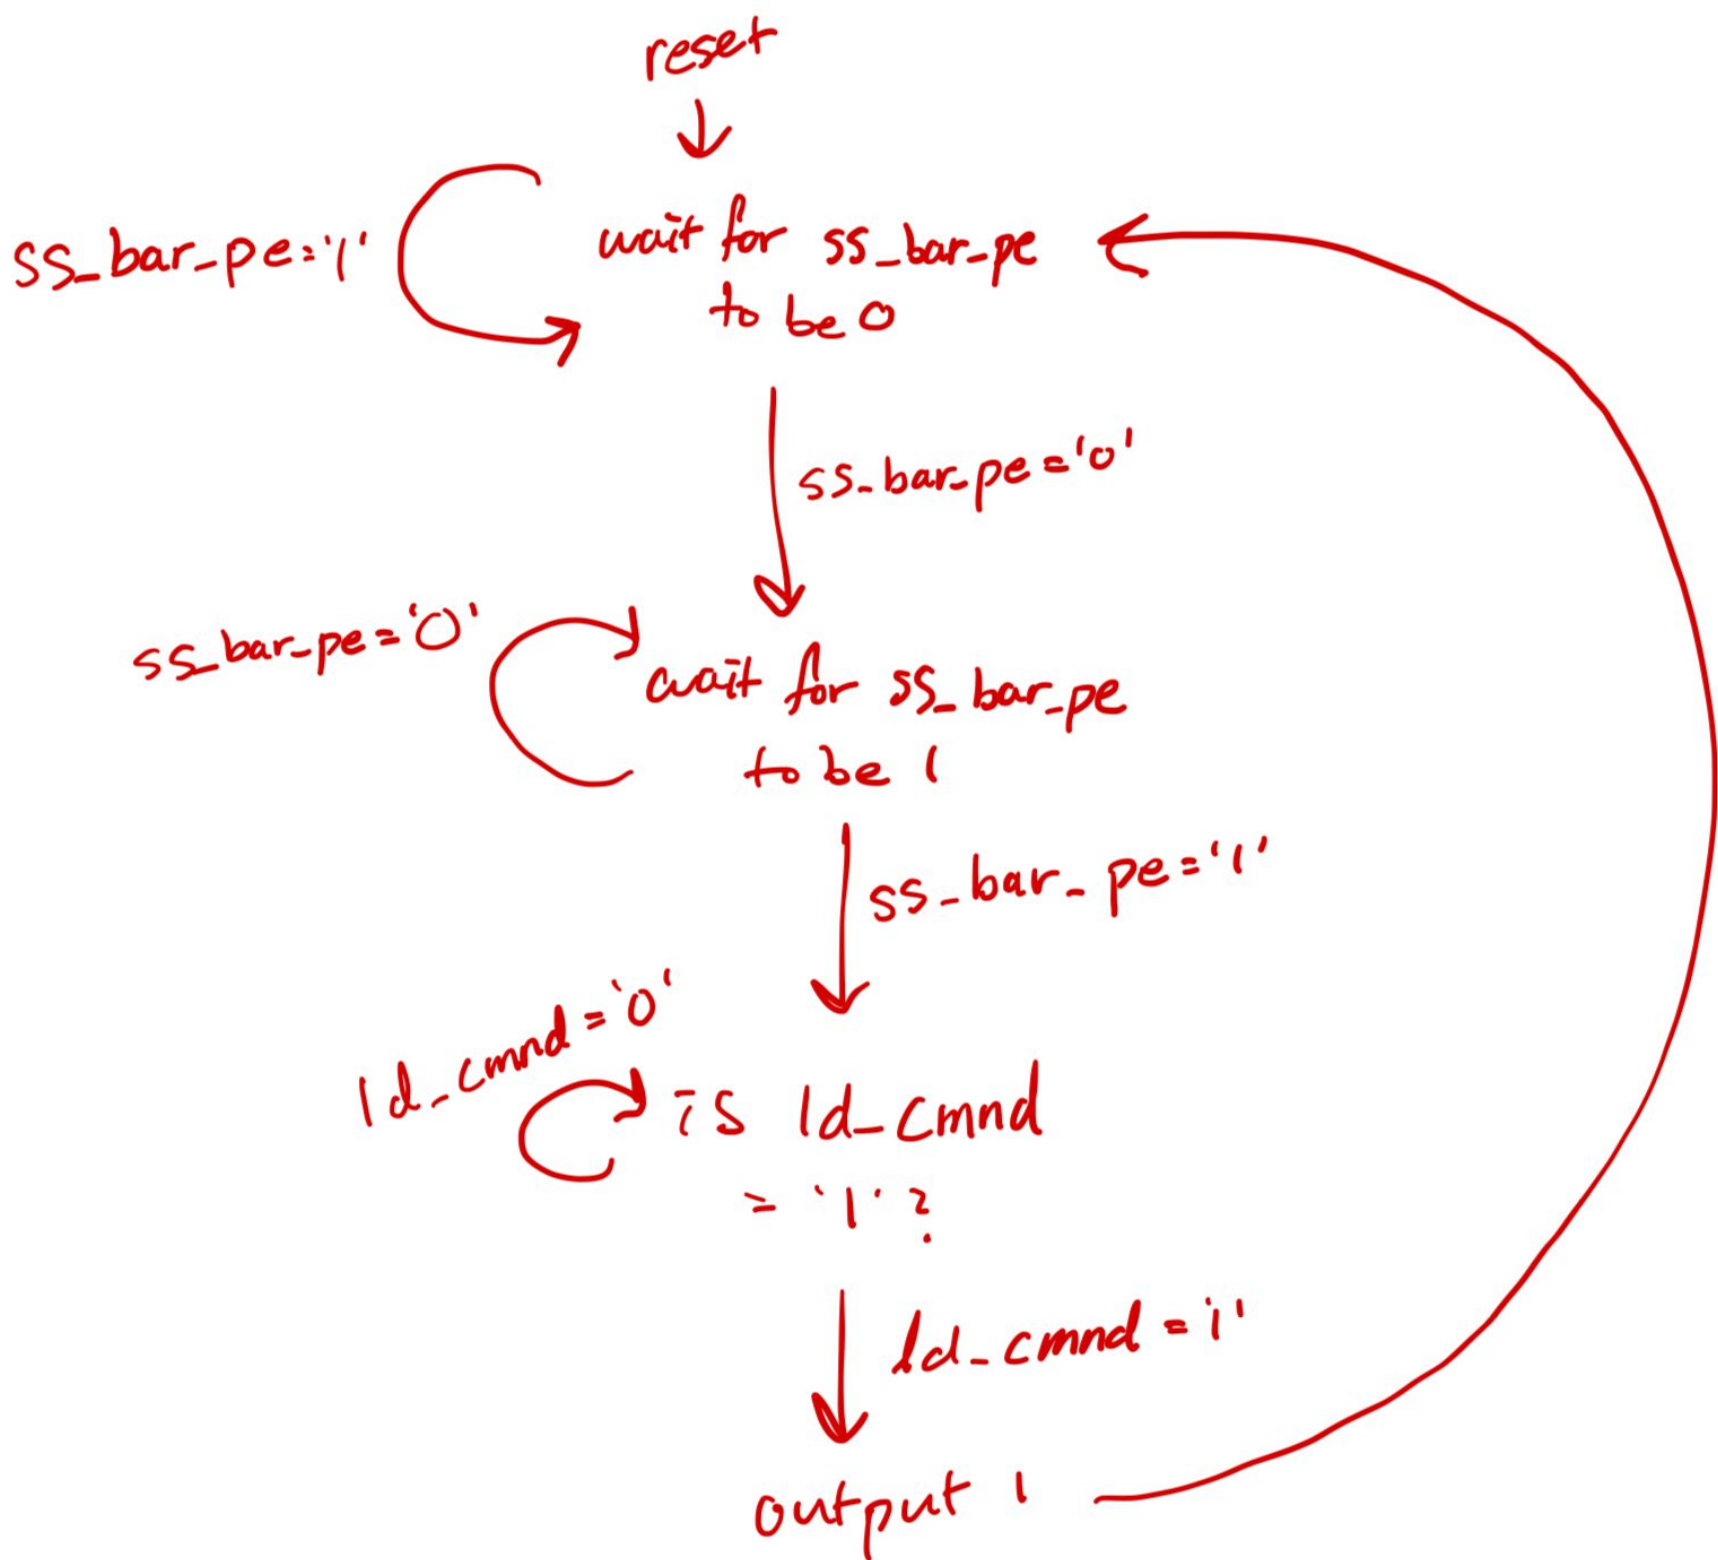 reset
ss_bar_pe='1'
wait for ss_bar_pe
to be 0
ss_bar_pe='0'
ss_bar_pe='0'
wait for ss_bar_pe
to be 1
ss_bar_pe='1'
ld_cmnd='0'
is ld_cmnd
= '1' ?
ld_cmnd='1'
output 1